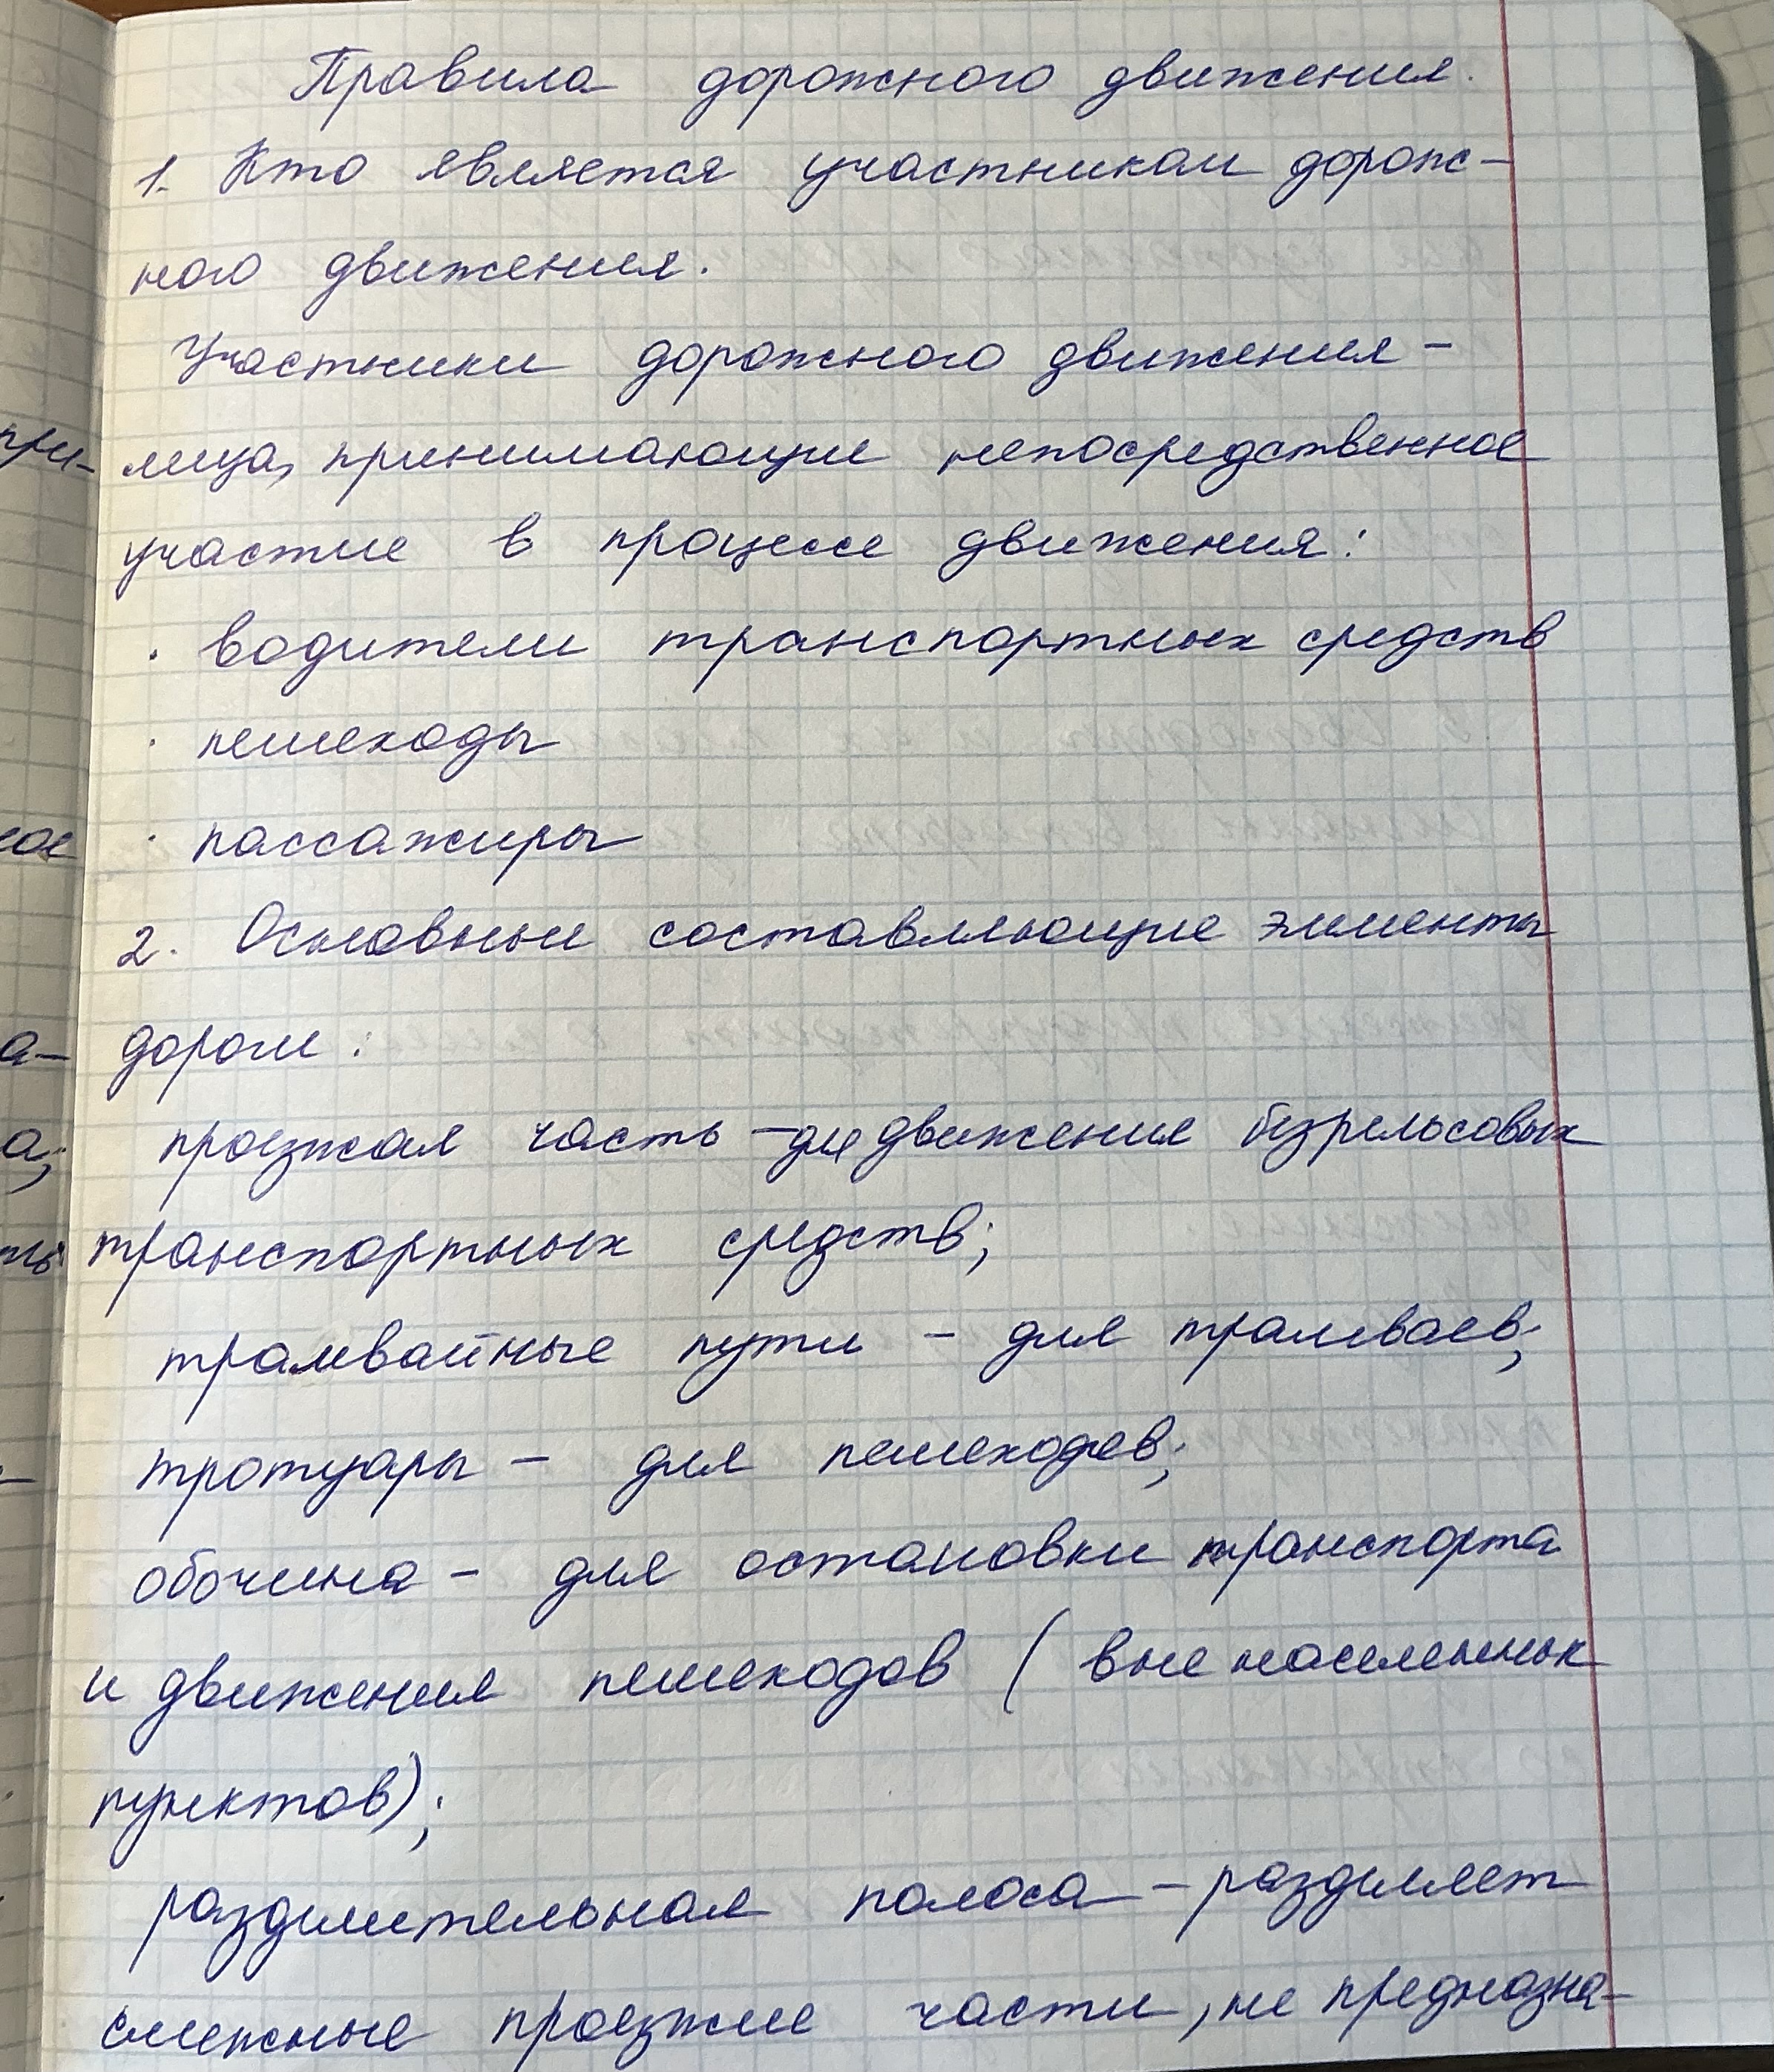 Правила дорожного движения.
1. Кто является участником дорож-
ного движения.
Участники дорожного движения -
лица, принимающие непосредственное
участие в процессе движения:
· водители транспортных средств
· пешеходы
· пассажиры
2. Основные составляющие элементы
дороги:
проезжая часть - для движения безрельсовых
транспортных средств;
трамвайные пути - для трамваев;
тротуары - для пешеходов;
обочина - для остановки транспорта
и движения пешеходов (вне населенных
пунктов);
разделительная полоса - разделяет
смежные проезжие части, не предназна-